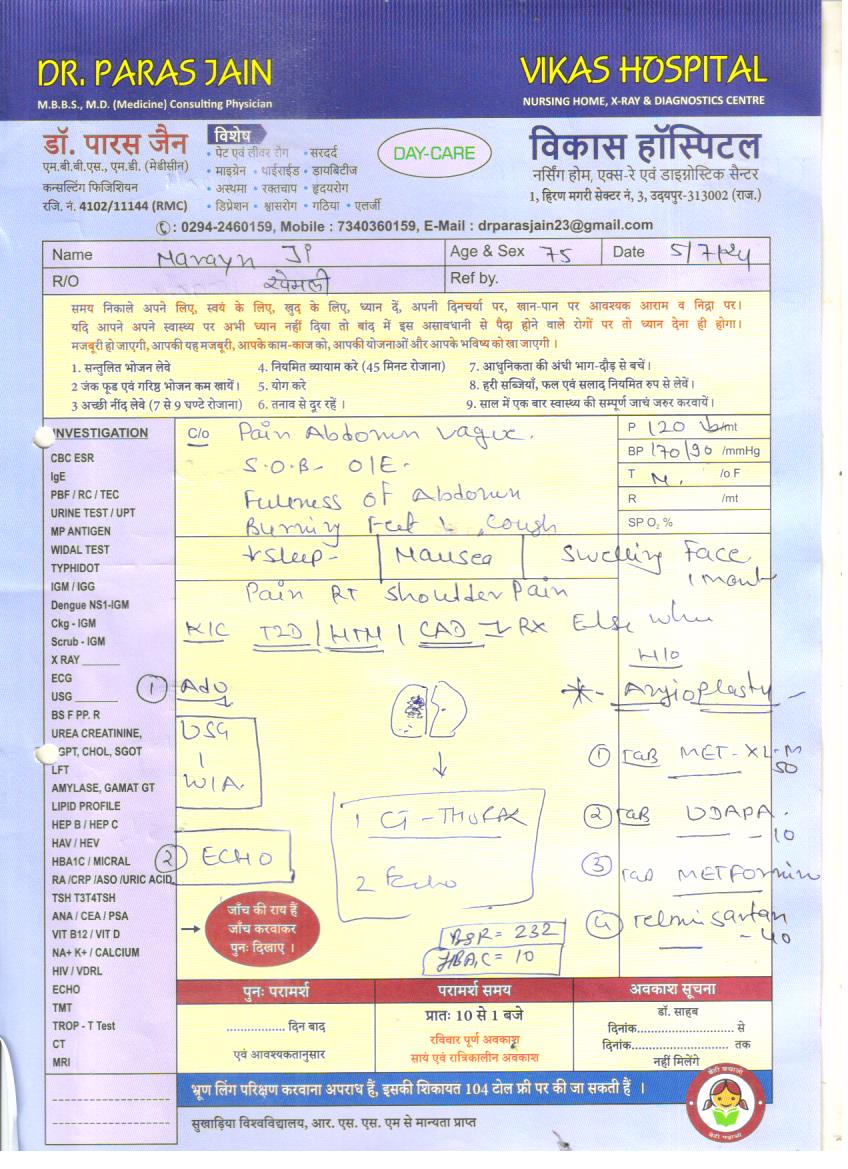 DR. PARAS JAIN
M.B.B.S., M.D. (Medicine) Consulting Physician
VIKAS HOSPITAL
NURSING HOME, X-RAY & DIAGNOSTICS CENTRE
डॉ. पारस जैन
एम.बी.बी.एस., एम.डी. (मेडीसीन)
कन्सल्टिंग फिजिशियन
रजि. नं. 4102/11144 (RMC)
विशेष
• पेट एवं लीवर रोग • सरदर्द
• माइग्रेन • थाईराईड • डायबिटीज
• अस्थमा • रक्तचाप • हृदयरोग
• डिप्रेशन • श्वासरोग • गठिया • एलर्जी
DAY-CARE
विकास हॉस्पिटल
नर्सिंग होम, एक्स-रे एवं डाइग्नोस्टिक सैन्टर
1, हिरण मगरी सेक्टर नं, 3, उदयपुर-313002 (राज.)
: 0294-2460159, Mobile : 7340360159, E-Mail : drparasjain23@gmail.com
Name Narayn Ji Age & Sex 75 Date 5/7/24
R/O Ref by.
समय निकाले अपने लिए, स्वयं के लिए, खुद के लिए, ध्यान दें, अपनी दिनचर्या पर, खान-पान पर आवश्यक आराम व निद्रा पर।
यदि आपने अपने स्वास्थ्य पर अभी ध्यान नहीं दिया तो बांद में इस असावधानी से पैदा होने वाले रोगों पर तो ध्यान देना ही होगा।
मजबूरी हो जाएगी, आपकी यह मजबूरी, आपके काम-काज को, आपकी योजनाओं और आपके भविष्य को खा जाएगी ।
1. सन्तुलित भोजन लेवे 4. नियमित व्यायाम करे (45 मिनट रोजाना) 7. आधुनिकता की अंधी भाग-दौड़ से बचें।
2 जंक फूड एवं गरिष्ठ भोजन कम खायें। 5. योग करे 8. हरी सब्जियाँ, फल एवं सलाद नियमित रुप से लेवें।
3 अच्छी नींद लेवे (7 से 9 घण्टे रोजाना) 6. तनाव से दूर रहें । 9. साल में एक बार स्वास्थ्य की सम्पूर्ण जाचं जरुर करवायें।
INVESTIGATION
CBC ESR
IgE
PBF / RC / TEC
URINE TEST / UPT
MP ANTIGEN
WIDAL TEST
TYPHIDOT
IGM / IGG
Dengue NS1-IGM
Ckg - IGM
Scrub - IGM
X RAY ______
ECG
USG ______
BS F PP. R
UREA CREATININE,
GPT, CHOL, SGOT
LFT
AMYLASE, GAMAT GT
LIPID PROFILE
HEP B / HEP C
HAV / HEV
HBA1C / MICRAL
RA /CRP /ASO /URIC ACID
TSH T3T4TSH
ANA / CEA / PSA
VIT B12 / VIT D
NA+ K+ / CALCIUM
HIV / VDRL
ECHO
TMT
TROP - T Test
CT
MRI
C/o Pain Abdomen vague.
S.O.B- O/E-
Fullness of Abdomen
Burning Feet , Cough
P 120 /mt
BP 170/90 /mmHg
T N. /o F
R /mt
SP O₂ %
↓ Sleep - | Nausea | Swelling Face
1 mont
Pain RT shoulder Pain
K/C T2D / HTN / CAD RX Else wher
H/O
* - Angioplasty -
1 Adv
USG
W/A
2 ECHO
↓
1 CT - THORAX
2 Echo
BSR = 232
HBA1C = 10
1 Tab MET-XL-M
50
2 Tab UDAPA.
- 10
3 Tab METFormin
4 Telmisartan
- 40
जाँच की राय हैं
जाँच करवाकर
पुनः दिखाए ।
पुनः परामर्श
................ दिन बाद
एवं आवश्यकतानुसार
परामर्श समय
प्रातः 10 से 1 बजे
रविवार पूर्ण अवकाश
सायं एवं रात्रिकालीन अवकाश
अवकाश सूचना
डॉ. साहब
दिनांक.......................... से
दिनांक.......................... तक
नहीं मिलेंगे
भ्रूण लिंग परिक्षण करवाना अपराध हैं, इसकी शिकायत 104 टोल फ्री पर की जा सकती हैं ।
सुखाड़िया विश्वविद्यालय, आर. एस. एस. एम से मान्यता प्राप्त
बेटी बचाओ
बेटी पढ़ाओ